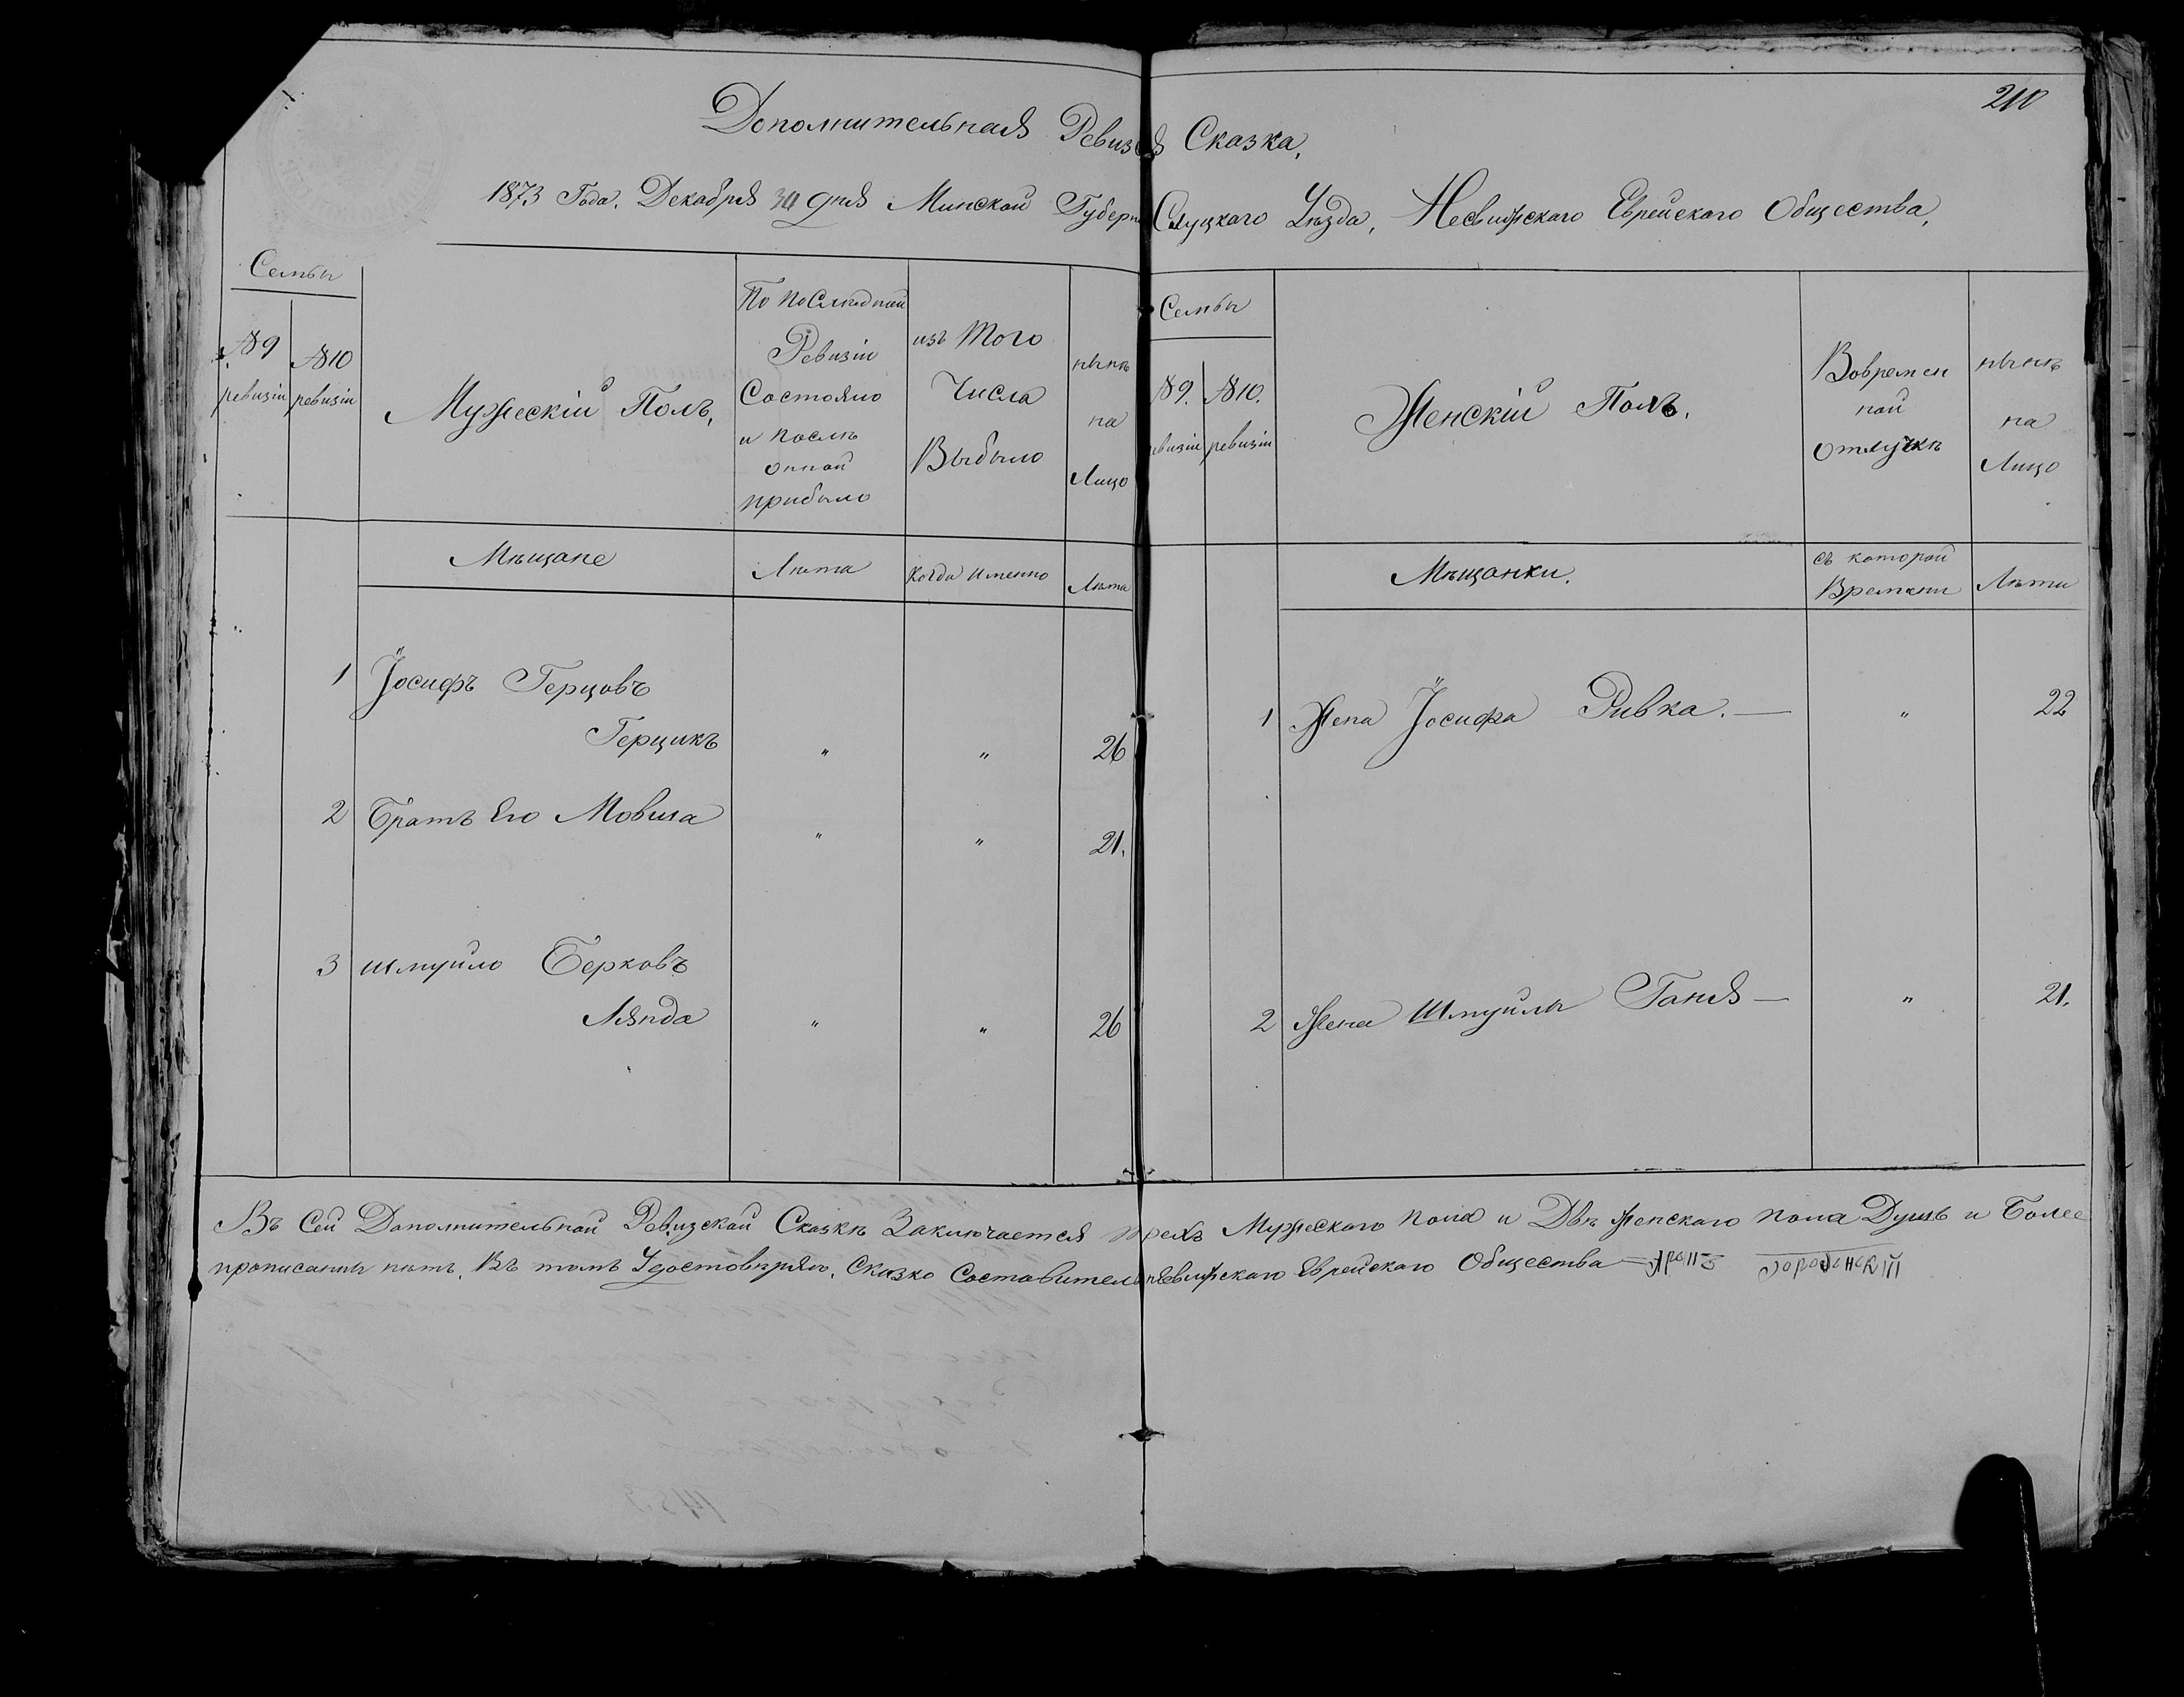 210
Дополнительная Ревизія Сказка,
1873 Года, Декабря 30 дня Минской Губерн Слуцкого Уѣзда, Несвижскаго Еврейскаго Общества,
Семьи
№ 9 ревизіи
№ 10 ревизіи
Мужескій Полъ,
По последней
Ревизіи
Состояло
и послѣ
оной
прибыло
изъ Того
Числа
Выбыло
нынѣ
на
Лицо
Мѣщане
Лѣта
Когда именно
Лѣта
1 Іосифъ Герцовъ
Герцикъ " " 26
2 Братъ Его Мовша " " 21.
3 Шмуйло Берковъ
Лянда " " 26
Семьи
№ 9. ревизіи
№ 10. ревизіи
Женскій Полъ.
Вовремен
ной
отлучкѣ
нынѣ
на
Лицо
Мѣщанки.
съ которой
Времени
Лѣты
1 Жена Іосифа Ривка. — " 22
2 Жена Шмуйлы Ганя — " 21.
Въ Сей Дополнительной Ревизской Сказкѣ Заключается трехъ Мужескаго пола и Двѣ женскаго пола Душъ и Более
прописаныи нѣтъ, Въ томъ Удостовѣряю, Сказко Составитель Несвижскаго Еврейскаго Общества —